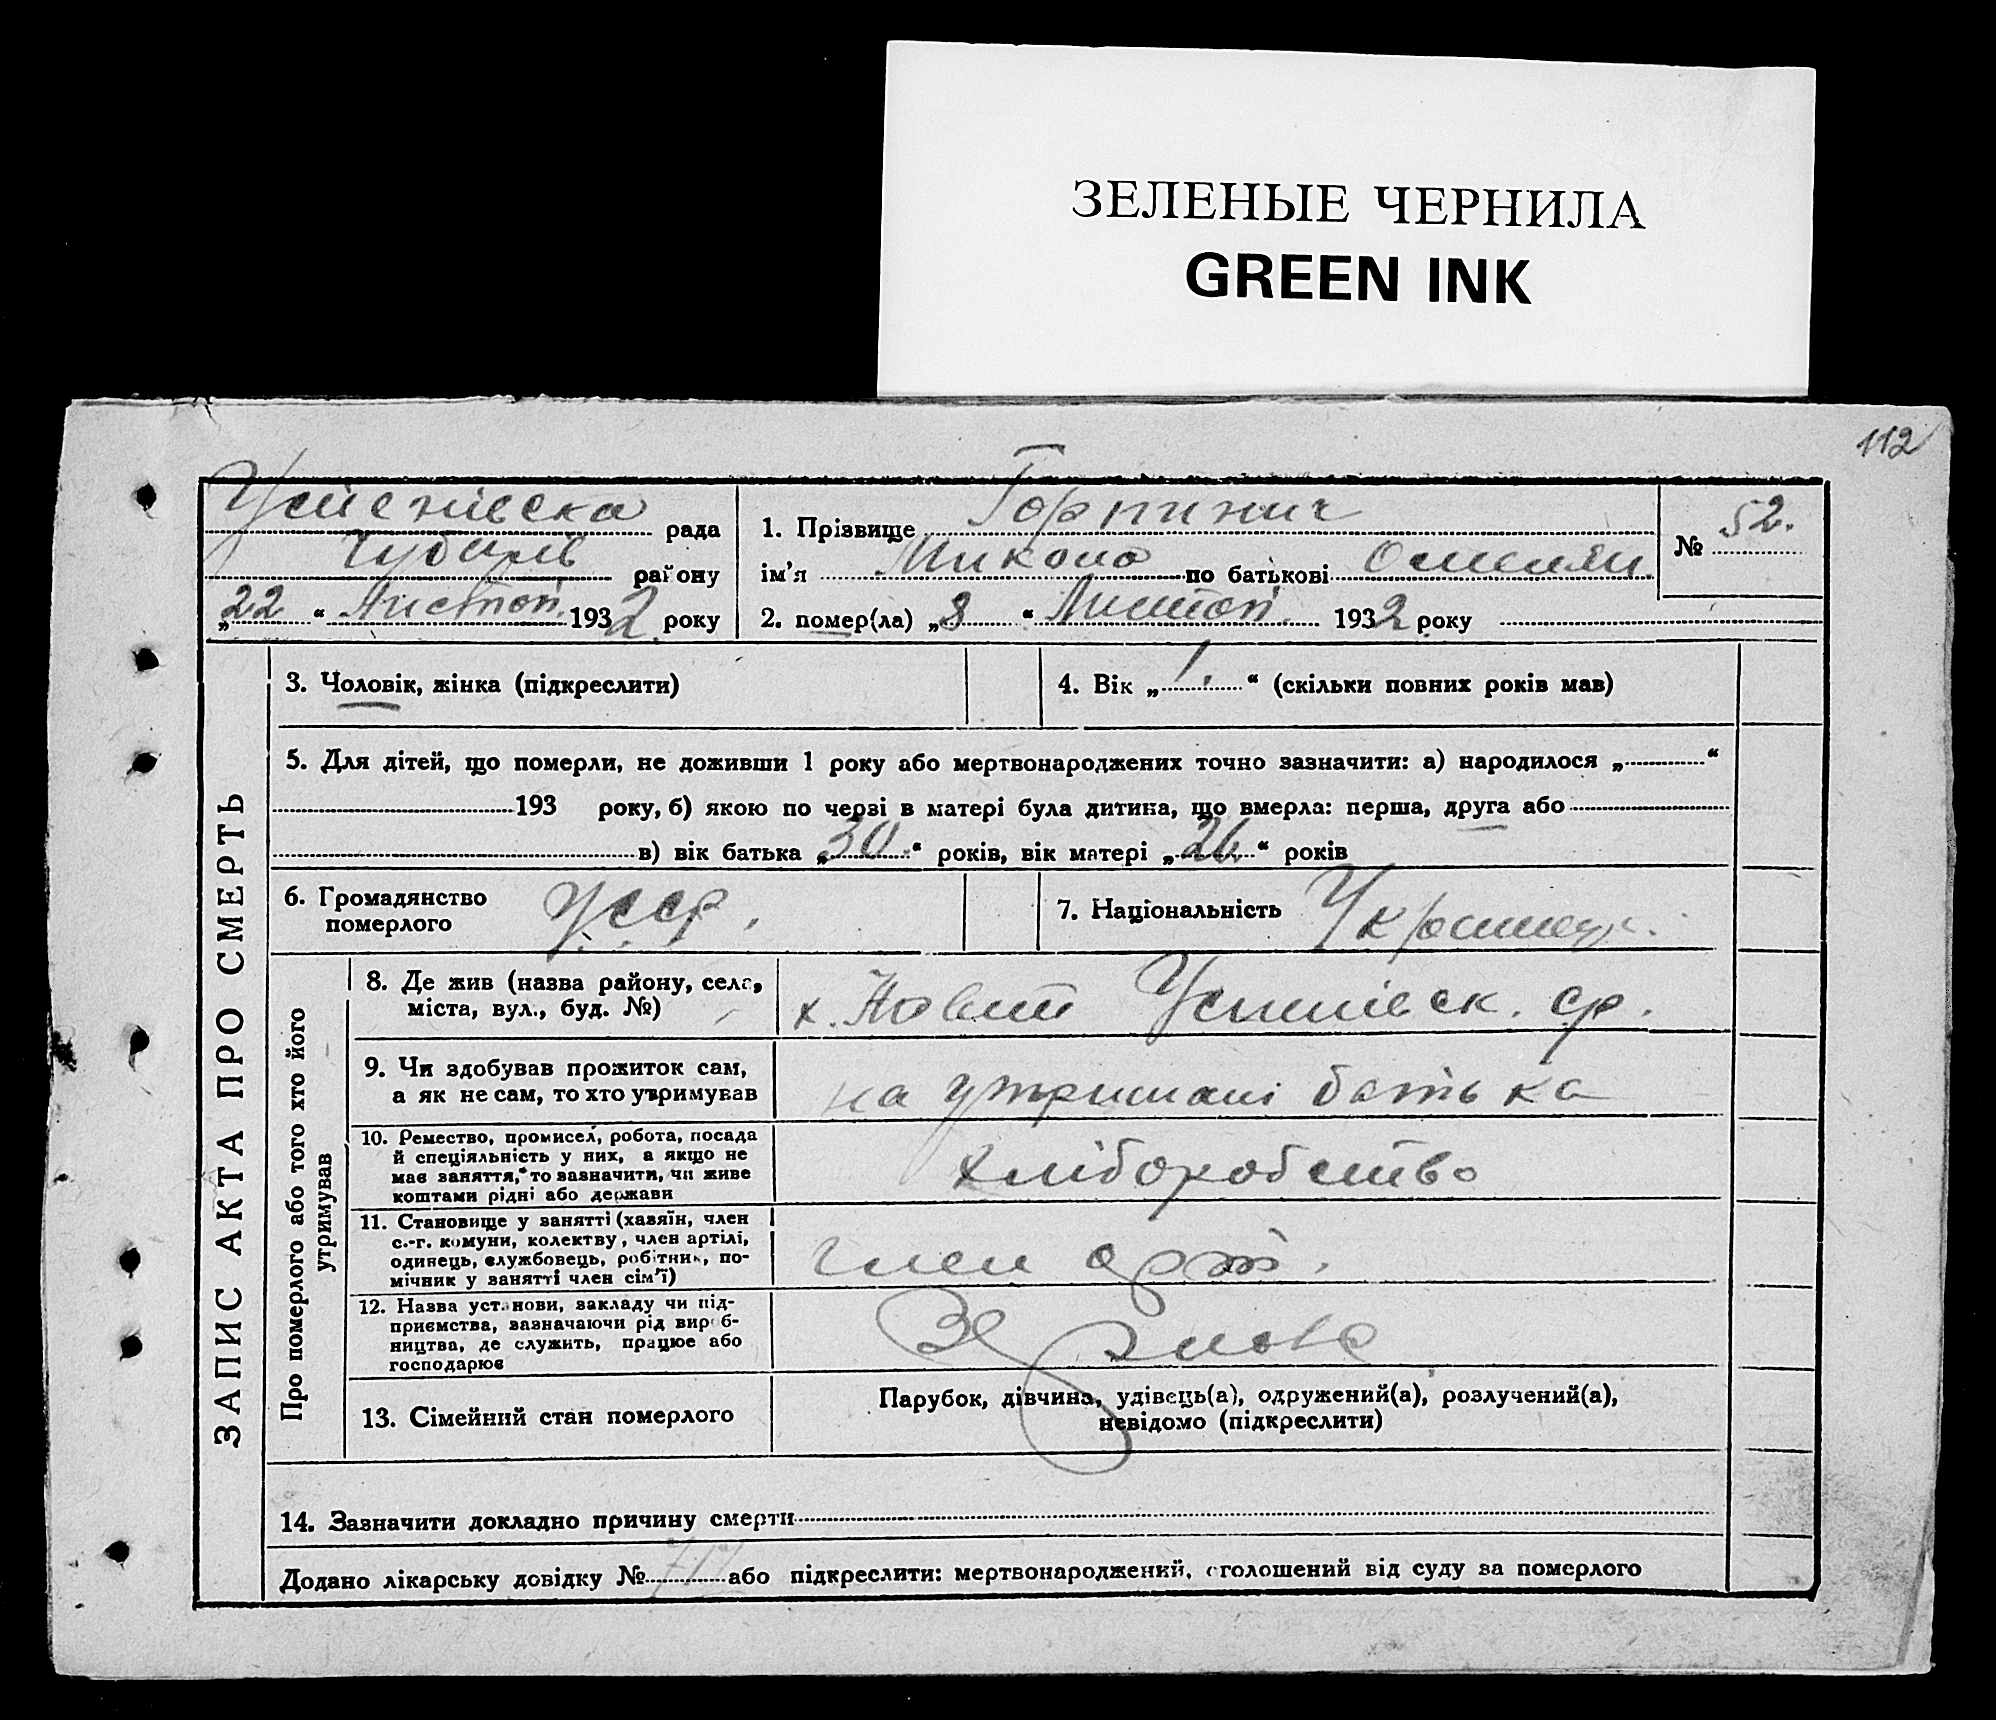 ЗЕЛЕНЫЕ ЧЕРНИЛА
GREEN INK
112
Успенівска рада
Чубарів району
„22“ Листоп. 1932 року
1. Прізвище Горпинич
ім'я Микола по батькові Омелян.
2. помер(ла) „8“ Листоп. 1932 року
№ 52.
ЗАПИС АКТА ПРО СМЕРТЬ
3. Чоловік, жінка (підкреслити)
4. Вік „1.“ (скільки повних років мав)
5. Для дітей, що померли, не доживши 1 року або мертвонароджених точно зазначити: а) народилося „ “
193 року, б) якою по черзі в матері була дитина, що вмерла: перша, друга або
в) вік батька „30.“ років, вік матері „26“ років
6. Громадянство
померлого
УССР.
7. Національність Українец.
Про померлого або того хто його
утримував
8. Де жив (назва району, села,
міста, вул., буд. №)
х. Новий Успинівск. ср.
9. Чи здобував прожиток сам,
а як не сам, то хто утримував
на утримані батька
10. Ремество, промисел, робота, посада
й спеціяльність у них, а якщо не
має заняття, то зазначити, чи живе
коштами рідні або держави
хліборобство
11. Становище у занятті (хазяїн, член
с.-г. комуни, колективу, член артілі,
одинець, службовець, робітник, по-
мічник у занятті член сім'ї)
член арт.
12. Назва установи, закладу чи під-
приємства, зазначаючи рід вироб-
ництва, де служить, працює або
господарює
13. Сімейний стан померлого
Парубок, дівчина, удівець(а), одружений(а), розлучений(а),
невідомо (підкреслити)
14. Зазначити докладно причину смерти
Додано лікарську довідку № або підкреслити: мертвонароджений, оголошений від суду за померлого